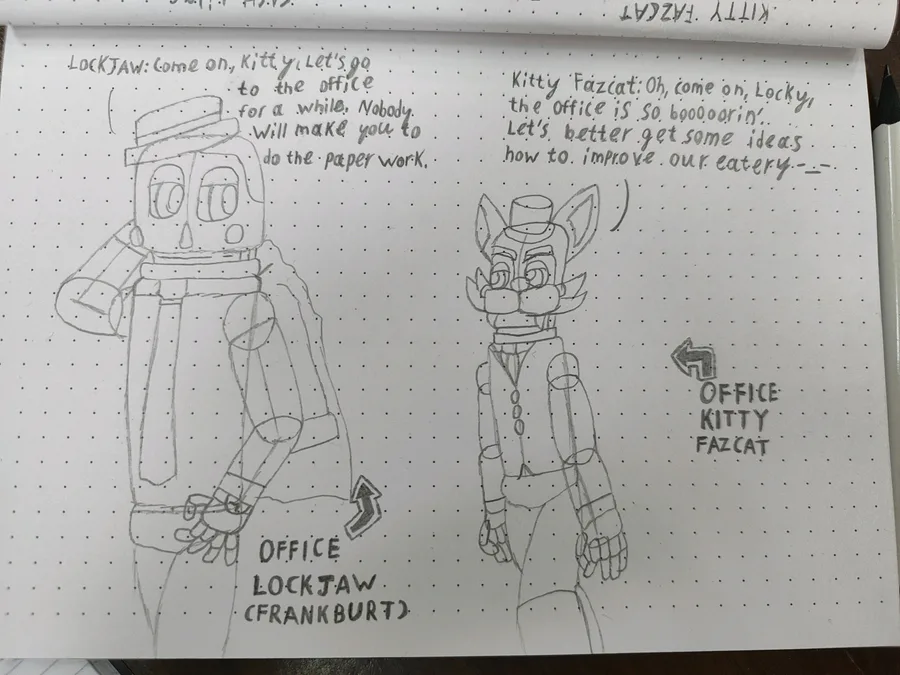 KITTY FAZCAT
LOCKJAW: Come on, Kitty, Let's go
to the office
for a while. Nobody
will make you to
do the paper work.
Kitty Fazcat: Oh, come on, Locky,
the office is so booooorin'..
Let's better get some ideas
how to improve our eatery-.-
OFFICE
KITTY
FAZCAT
OFFICE
LOCKJAW
(FRANKBURT)